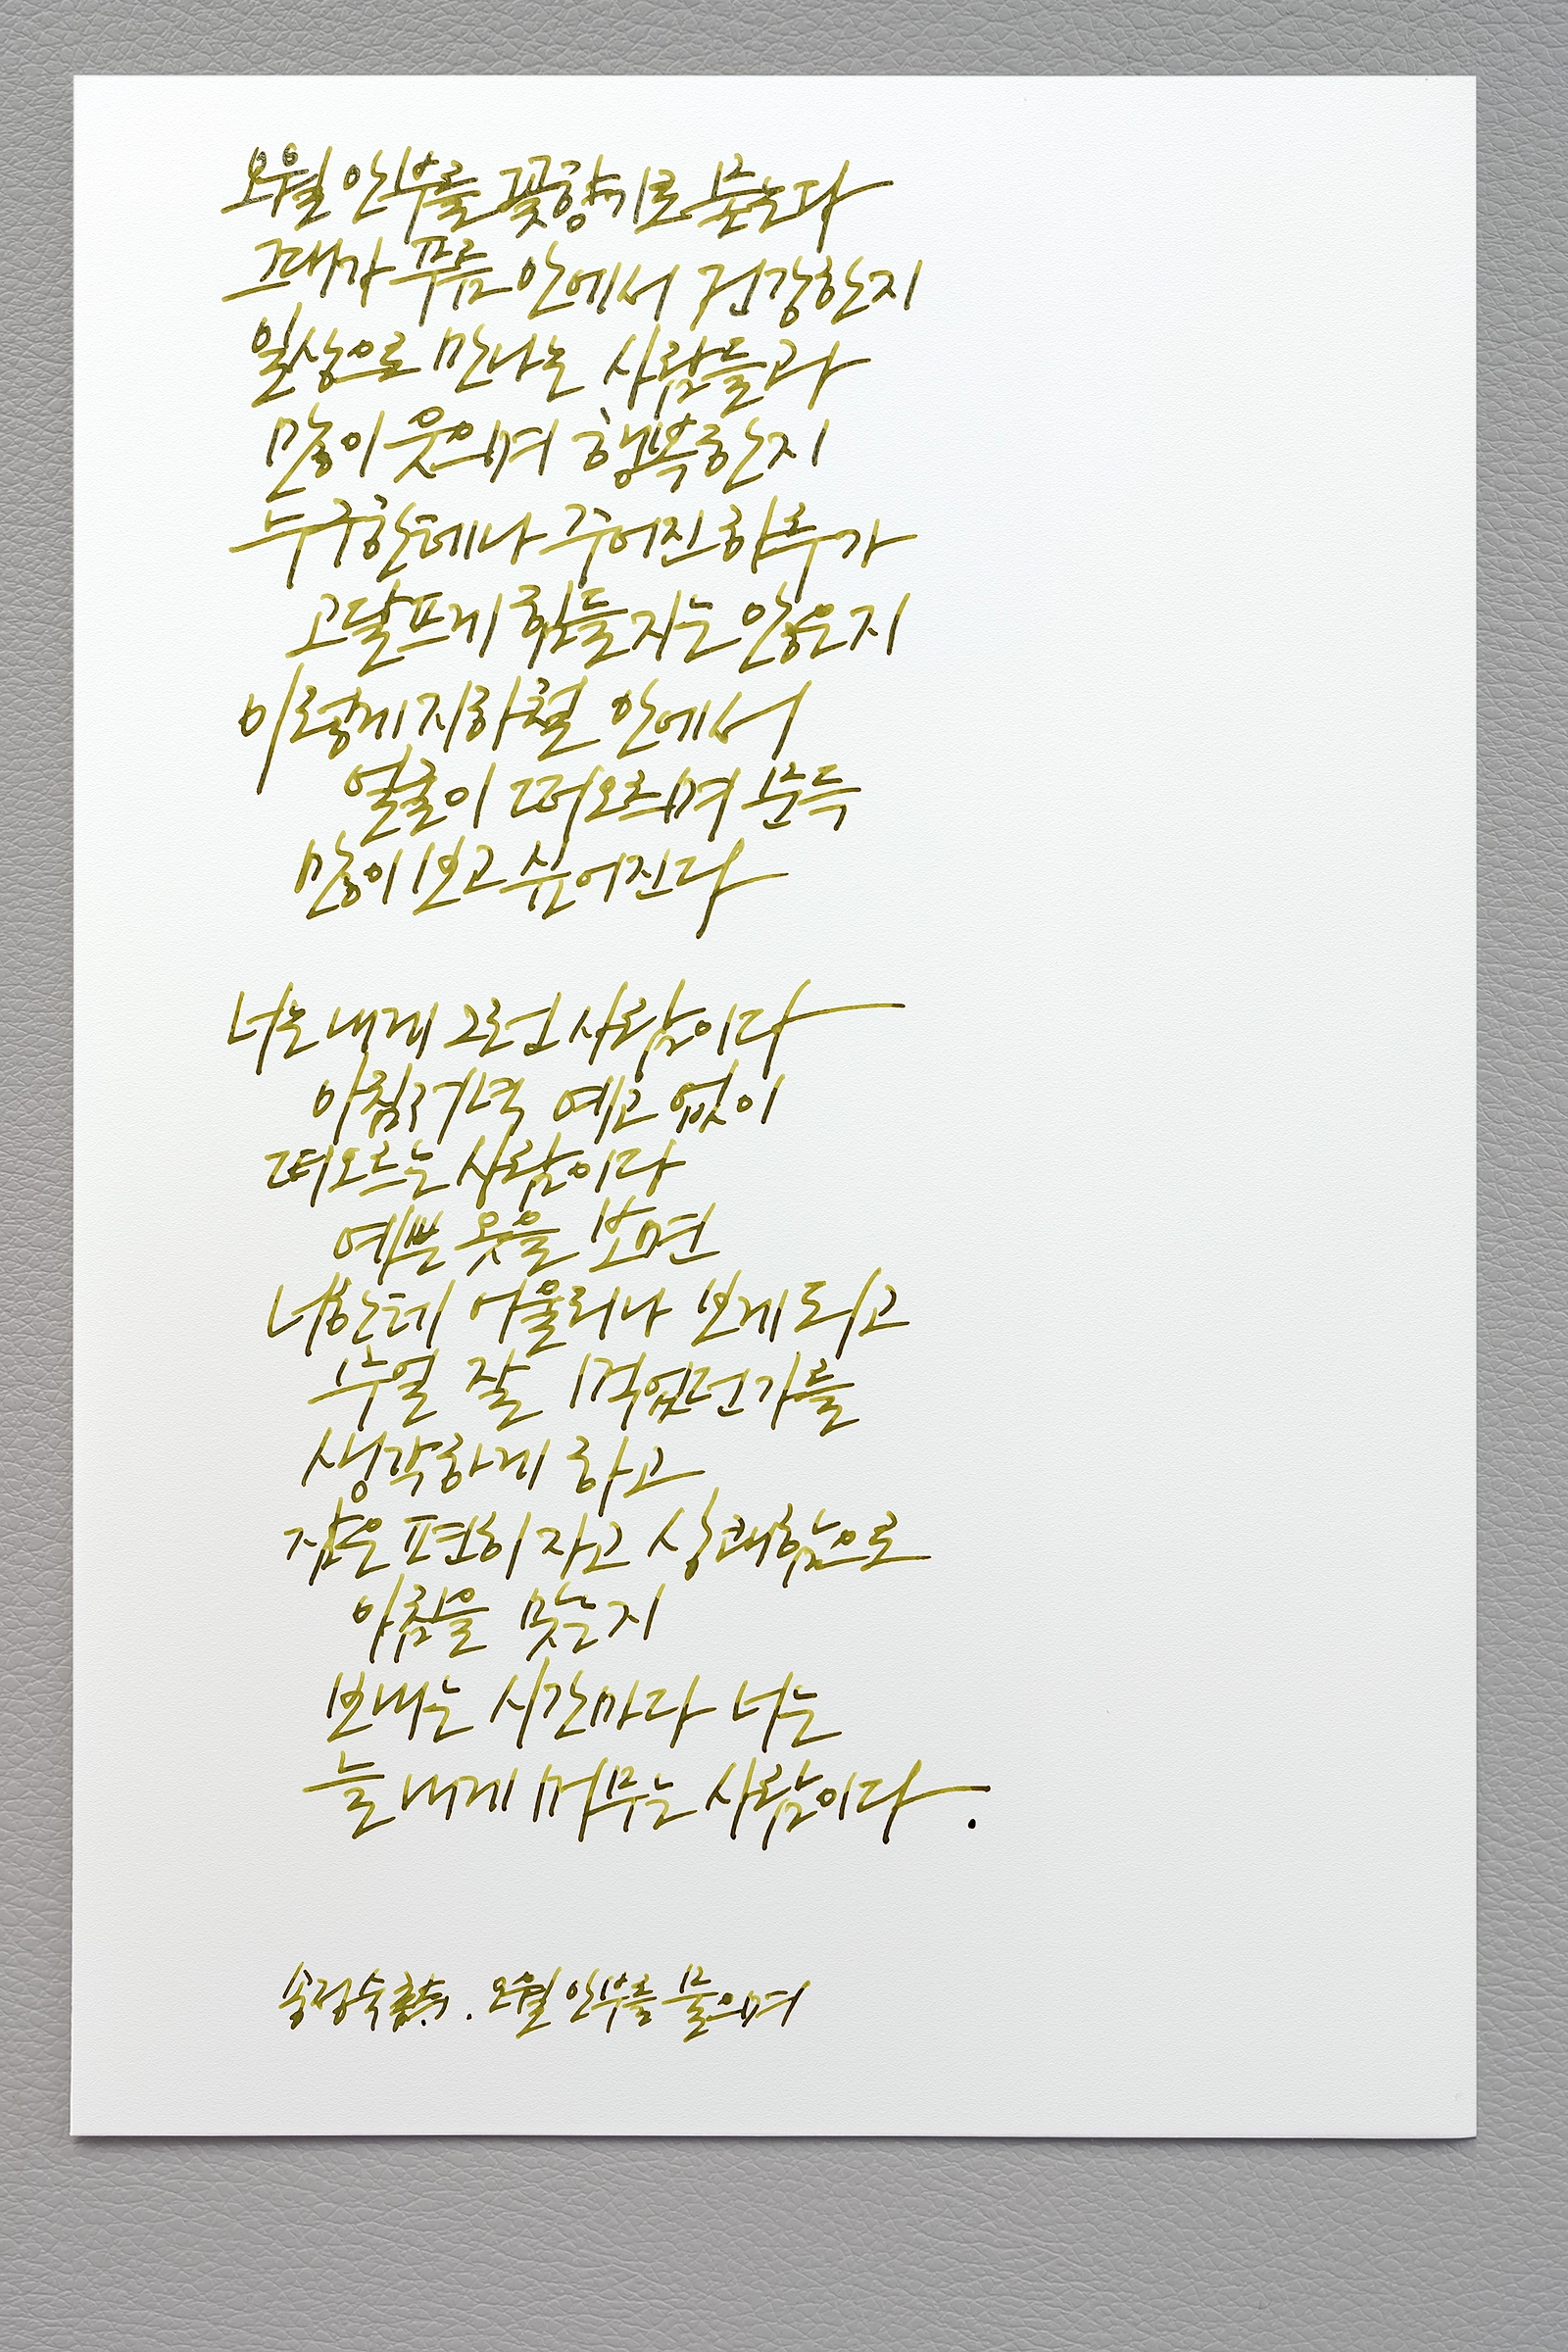 오월 안부를 꽃향기로 묻는다
그대가 푸름 안에서 건강한지
일상으로 만나는 사람들과
많이 웃으며 행복한지
누구한테나 주어진 하루가
고달프게 힘들지는 않은지
이렇게 지하철 안에서
얼굴이 떠오르며 문득
많이 보고 싶어진다
너는 내게 그런 사람이다
아침 저녁 예고 없이
떠오르는 사람이다
예쁜 옷을 보면
너한테 어울리나 보게 되고
무얼 잘 먹었던가를
생각하게 하고
잠은 편히 자고 상쾌함으로
아침을 맞는지
보내는 시간마다 너는
늘 내게 머무는 사람이다.
송정숙 . 오월 안부를 물으며